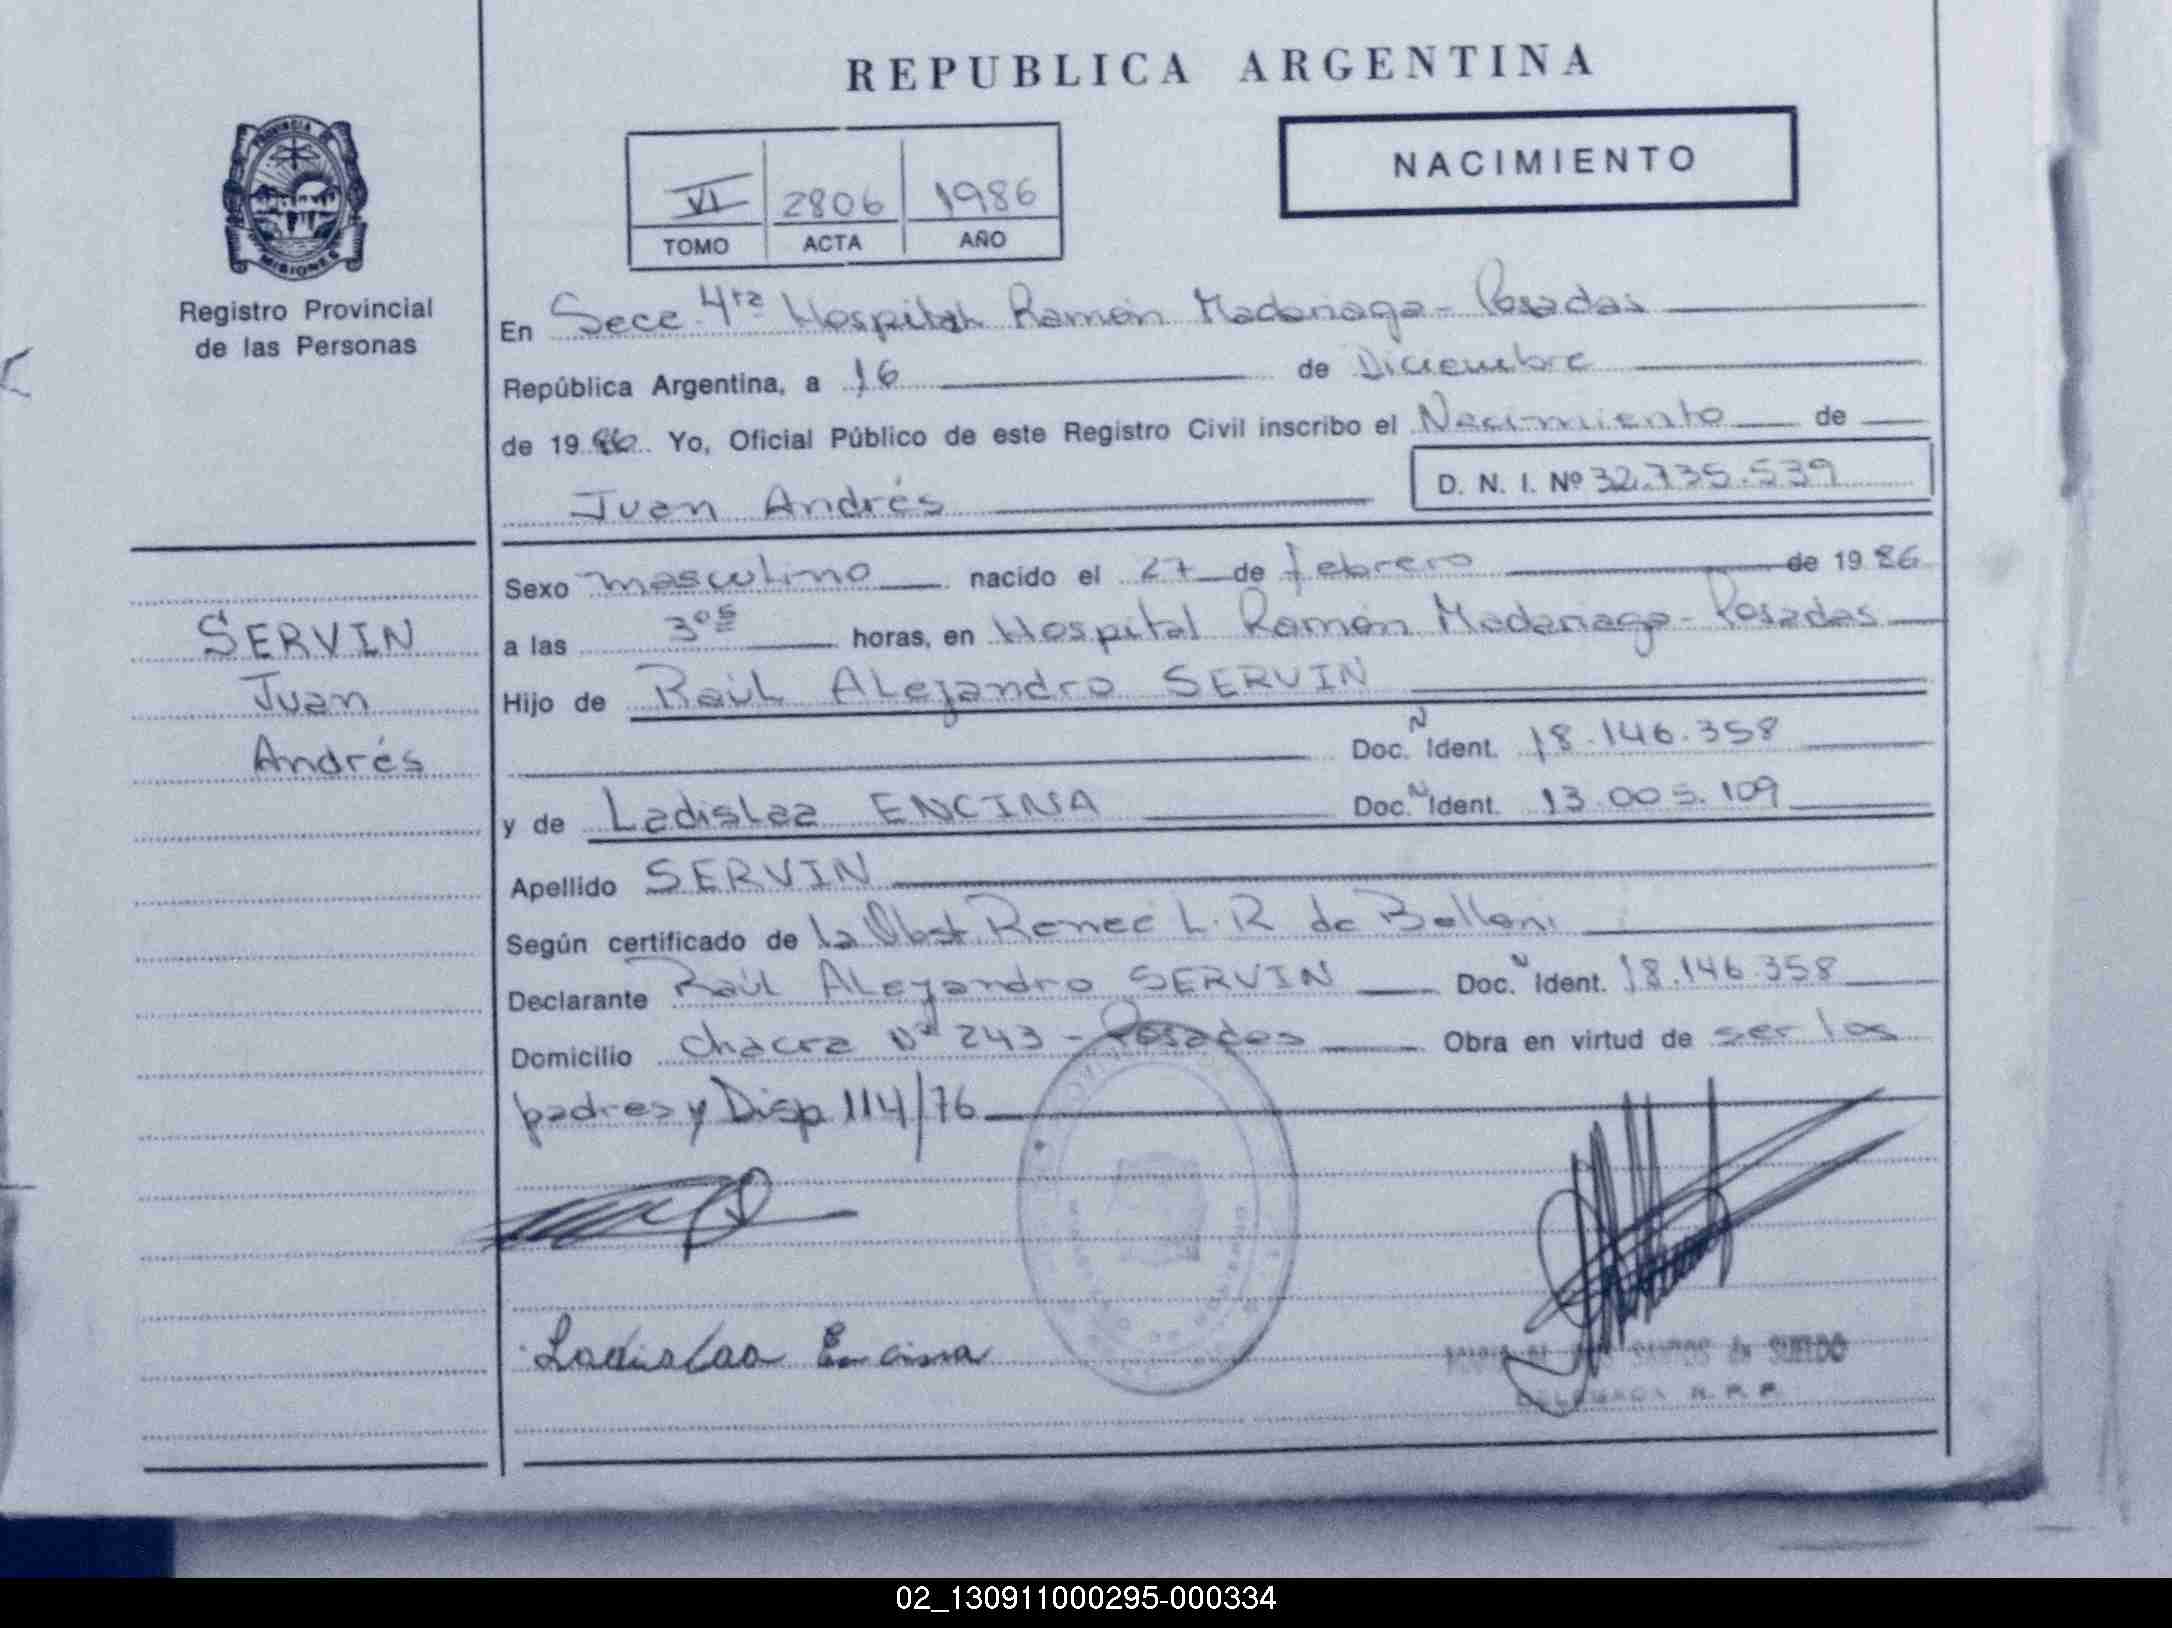 REPUBLICA ARGENTINA
NACIMIENTO
VI 2806 1986
TOMO ACTA AÑO
PROVINCIA
MISIONES
Registro Provincial
de las Personas
En Secc 4ta Hospital Ramón Madariaga - Posadas
República Argentina, a 16 de Diciembre
de 1986. Yo, Oficial Público de este Registro Civil inscribo el Nacimiento de
D. N. I. Nº 32.735.539
Juan Andrés
SERVIN
Juan
Andrés
Sexo masculino nacido el 27 de febrero de 1986
a las 3 05 horas, en Hospital Ramón Madariaga - Posadas
Hijo de Raúl Alejandro SERVIN
Doc. N Ident. 18.146.358
y de Ladislaa ENCINA Doc. N Ident. 13.005.109
Apellido SERVIN
Según certificado de la Obst Renee L. R de Belloni
Declarante Raúl Alejandro SERVIN Doc. N Ident. 18.146.358
Domicilio chacra Nº 243 - Posadas Obra en virtud de ser los
padres y Disp 114/76
Ladislaa Encina
SANTOS de SUELDO
DELEGADA R. P. P.
02_130911000295-000334